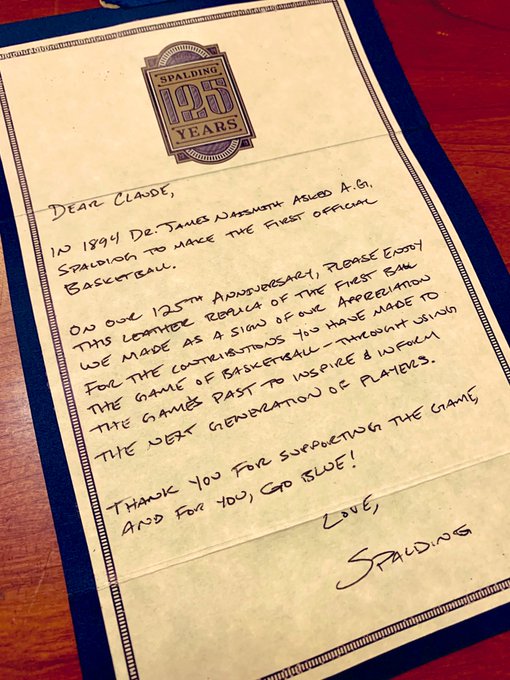 SPALDING
125
YEARS
DEAR CLAUDE,
IN 1894 DR. JAMES NAISMITH ASKED A.G.
SPALDING TO MAKE THE FIRST OFFICIAL
BASKETBALL.
ON OUR 125TH ANNIVERSARY, PLEASE ENJOY
THIS LEATHER REPLICA OF THE FIRST BALL
WE MADE AS A SIGN OF OUR APPRECIATION
FOR THE CONTRIBUTIONS YOU HAVE MADE TO
THE GAME OF BASKETBALL - THROUGH USING
THE GAME'S PAST TO INSPIRE & INFORM
THE NEXT GENERATION OF PLAYERS.
THANK YOU FOR SUPPORTING THE GAME,
AND FOR YOU, GO BLUE!
LOVE,
SPALDING